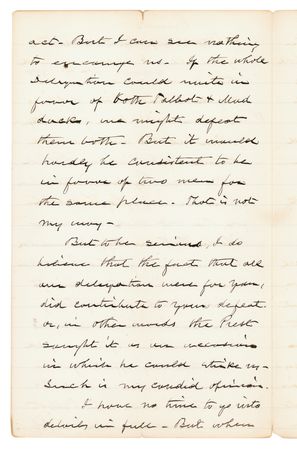 act - But I can see nothing
to encourage us. If the whole
Delegation could unite in
favor of both Talbot & Mad
docks, we might defeat
them both - But it would
hardly be consistent to be
in favor of two men for
the same place - That is not
my way -
But to be serious, I do
believe that the fact that all
our delegation were for you,
did contribute to your defeat
or, in other words the Prest
sought it as an occasion
in which he could strike us -
Such is my candid opinion.
I have no time to go into
details in full - But when